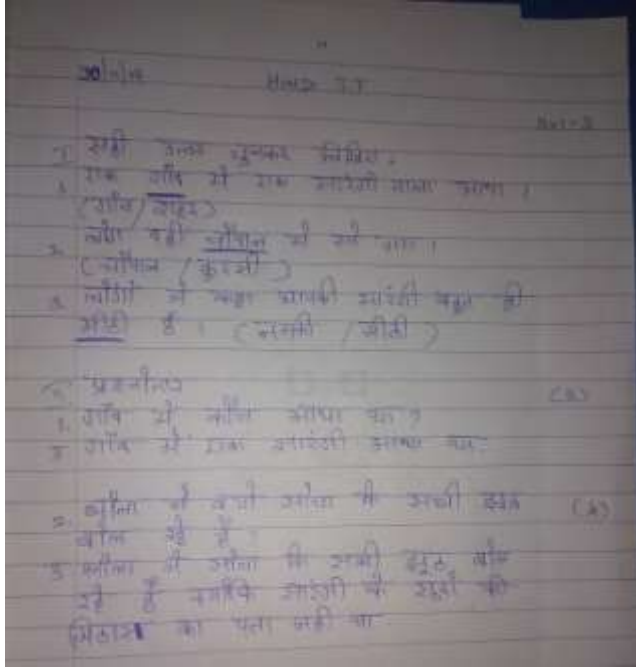 सही उत्तर चुनकर लिखिए।
1. एक गाँव में एक सारंगी वाला आया।
(गाँव / शहर)
2. लोग वहीं चौपाल में
(चौपाल / कुटनी)
3. लोगों ने कहा आपकी सारंगी बहुत ही
मीठी है। ( / मीठी)
प्रश्नोत्तर
1. गाँव में कौन आया था?
गाँव में एक सारंगी वाला था
2. भोला ने क्यों सोचा कि सभी झूठ
बोल रहे हैं?
भोला ने सोचा कि सभी झूठ बोल
रहे हैं क्योंकि सारंगी के सुरों की
मिठास का पता नहीं था